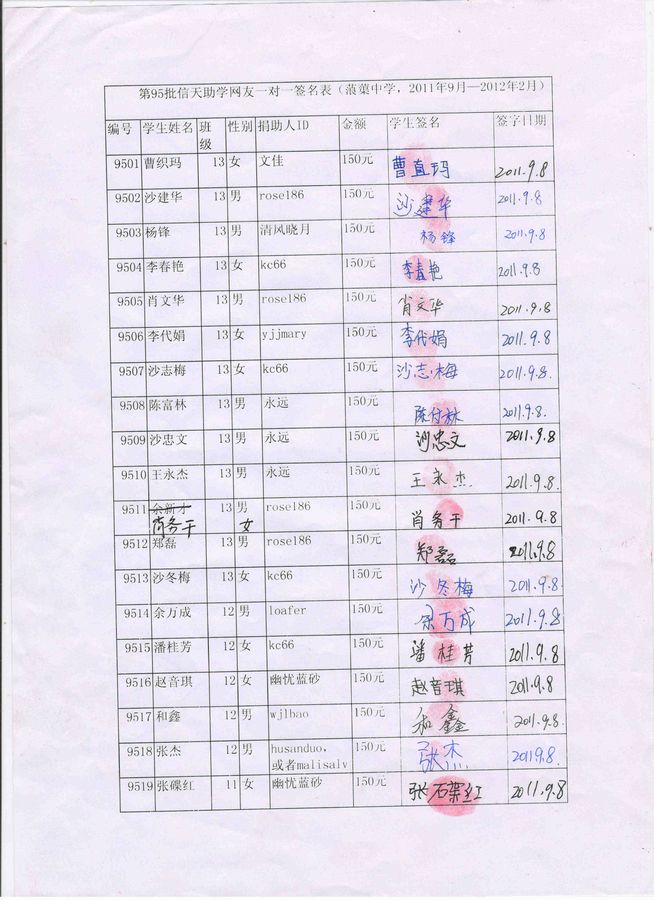 第95批信天助学网友一对一签名表（蒗蕖中学，2011年9月—2012年2月）
编号 学生姓名 班级 性别 捐助人ID 金额 学生签名 签字日期
9501 曹织玛 13 女 文佳 150元 曹直玛 2011.9.8
9502 沙建华 13 男 rose186 150元 沙建华 2011.9.8
9503 杨锋 13 男 清风晓月 150元 杨锋 2011.9.8
9504 李春艳 13 女 kc66 150元 李春艳 2011.9.8
9505 肖文华 13 男 rose186 150元 肖文华 2011.9.8
9506 李代娟 13 女 yjjmary 150元 李代娟 2011.9.8
9507 沙志梅 13 女 kc66 150元 沙志梅 2011.9.8.
9508 陈富林 13 男 永远 150元 陈付林 2011.9.8.
9509 沙忠文 13 男 永远 150元 沙忠文 2011.9.8
9510 王永杰 13 男 永远 150元 王永杰 2011.9.8
9511 余新才 13 男 rose186 150元 肖务干 2011.9.8
肖务干 女
9512 郑磊 13 男 rose186 150元 郑磊 2011.9.8
9513 沙冬梅 13 女 kc66 150元 沙冬梅 2011.9.8
9514 余万成 12 男 loafer 150元 余万成 2011.9.8.
9515 潘桂芳 12 女 kc66 150元 潘桂芳 2011.9.8
9516 赵音琪 12 女 幽忧蓝砂 150元 赵音琪 2011.9.8
9517 和鑫 12 男 wjlbao 150元 和鑫 2011.9.8.
9518 张杰 12 男 husanduo, 150元 张杰 20119.8.
或者malisalv
9519 张碟红 11 女 幽忧蓝砂 150元 张碟红 2011.9.8